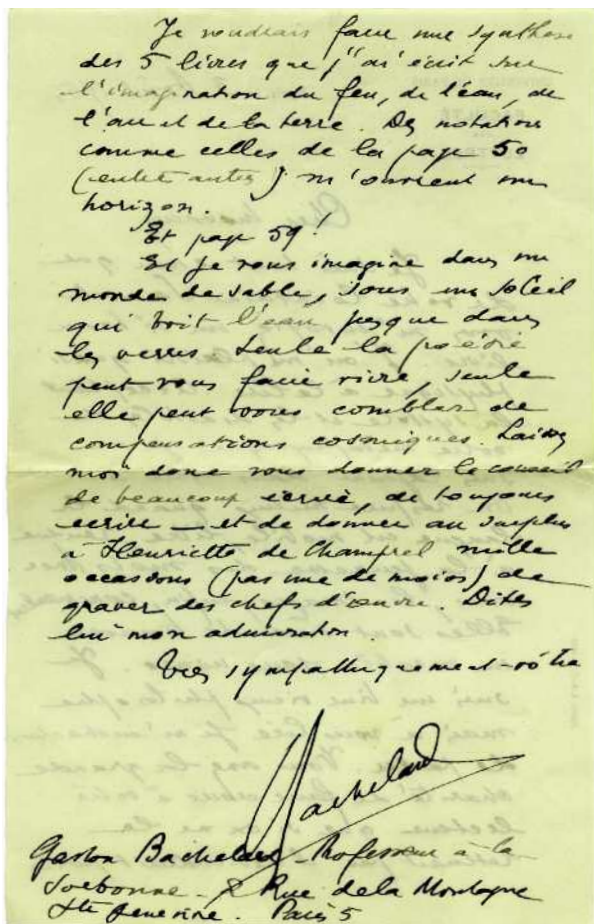 Je voudrais faire une synthèse
des 5 livres que j'ai écrit sur
l'imagination du feu, de l'eau, de
l'air et de la terre. Des notations
comme celles de la page 50
(entre autres) m'ouvrent un
horizon.
Et page 59!
Et je vous imagine dans un
monde de sable, sous un soleil
qui boit l'eau jusque dans
les verres seule la poésie
peut vous faire vivre, seule
elle peut vous combler de
compensations cosmiques. Laissez
moi donc vous donner le conseil
de beaucoup écrire, de toujours
écrire — et de donner au surplus
à Henriette de Champrel mille
occasions (pas une de moins) de
graver des chefs d'œuvre. Dites
lui mon admiration.
Très sympathiquement vôtre
Bachelard
Gaston Bachelard Professeur à la
Sorbonne. 2 Rue de la Montagne
Ste Geneviève. Paris 5